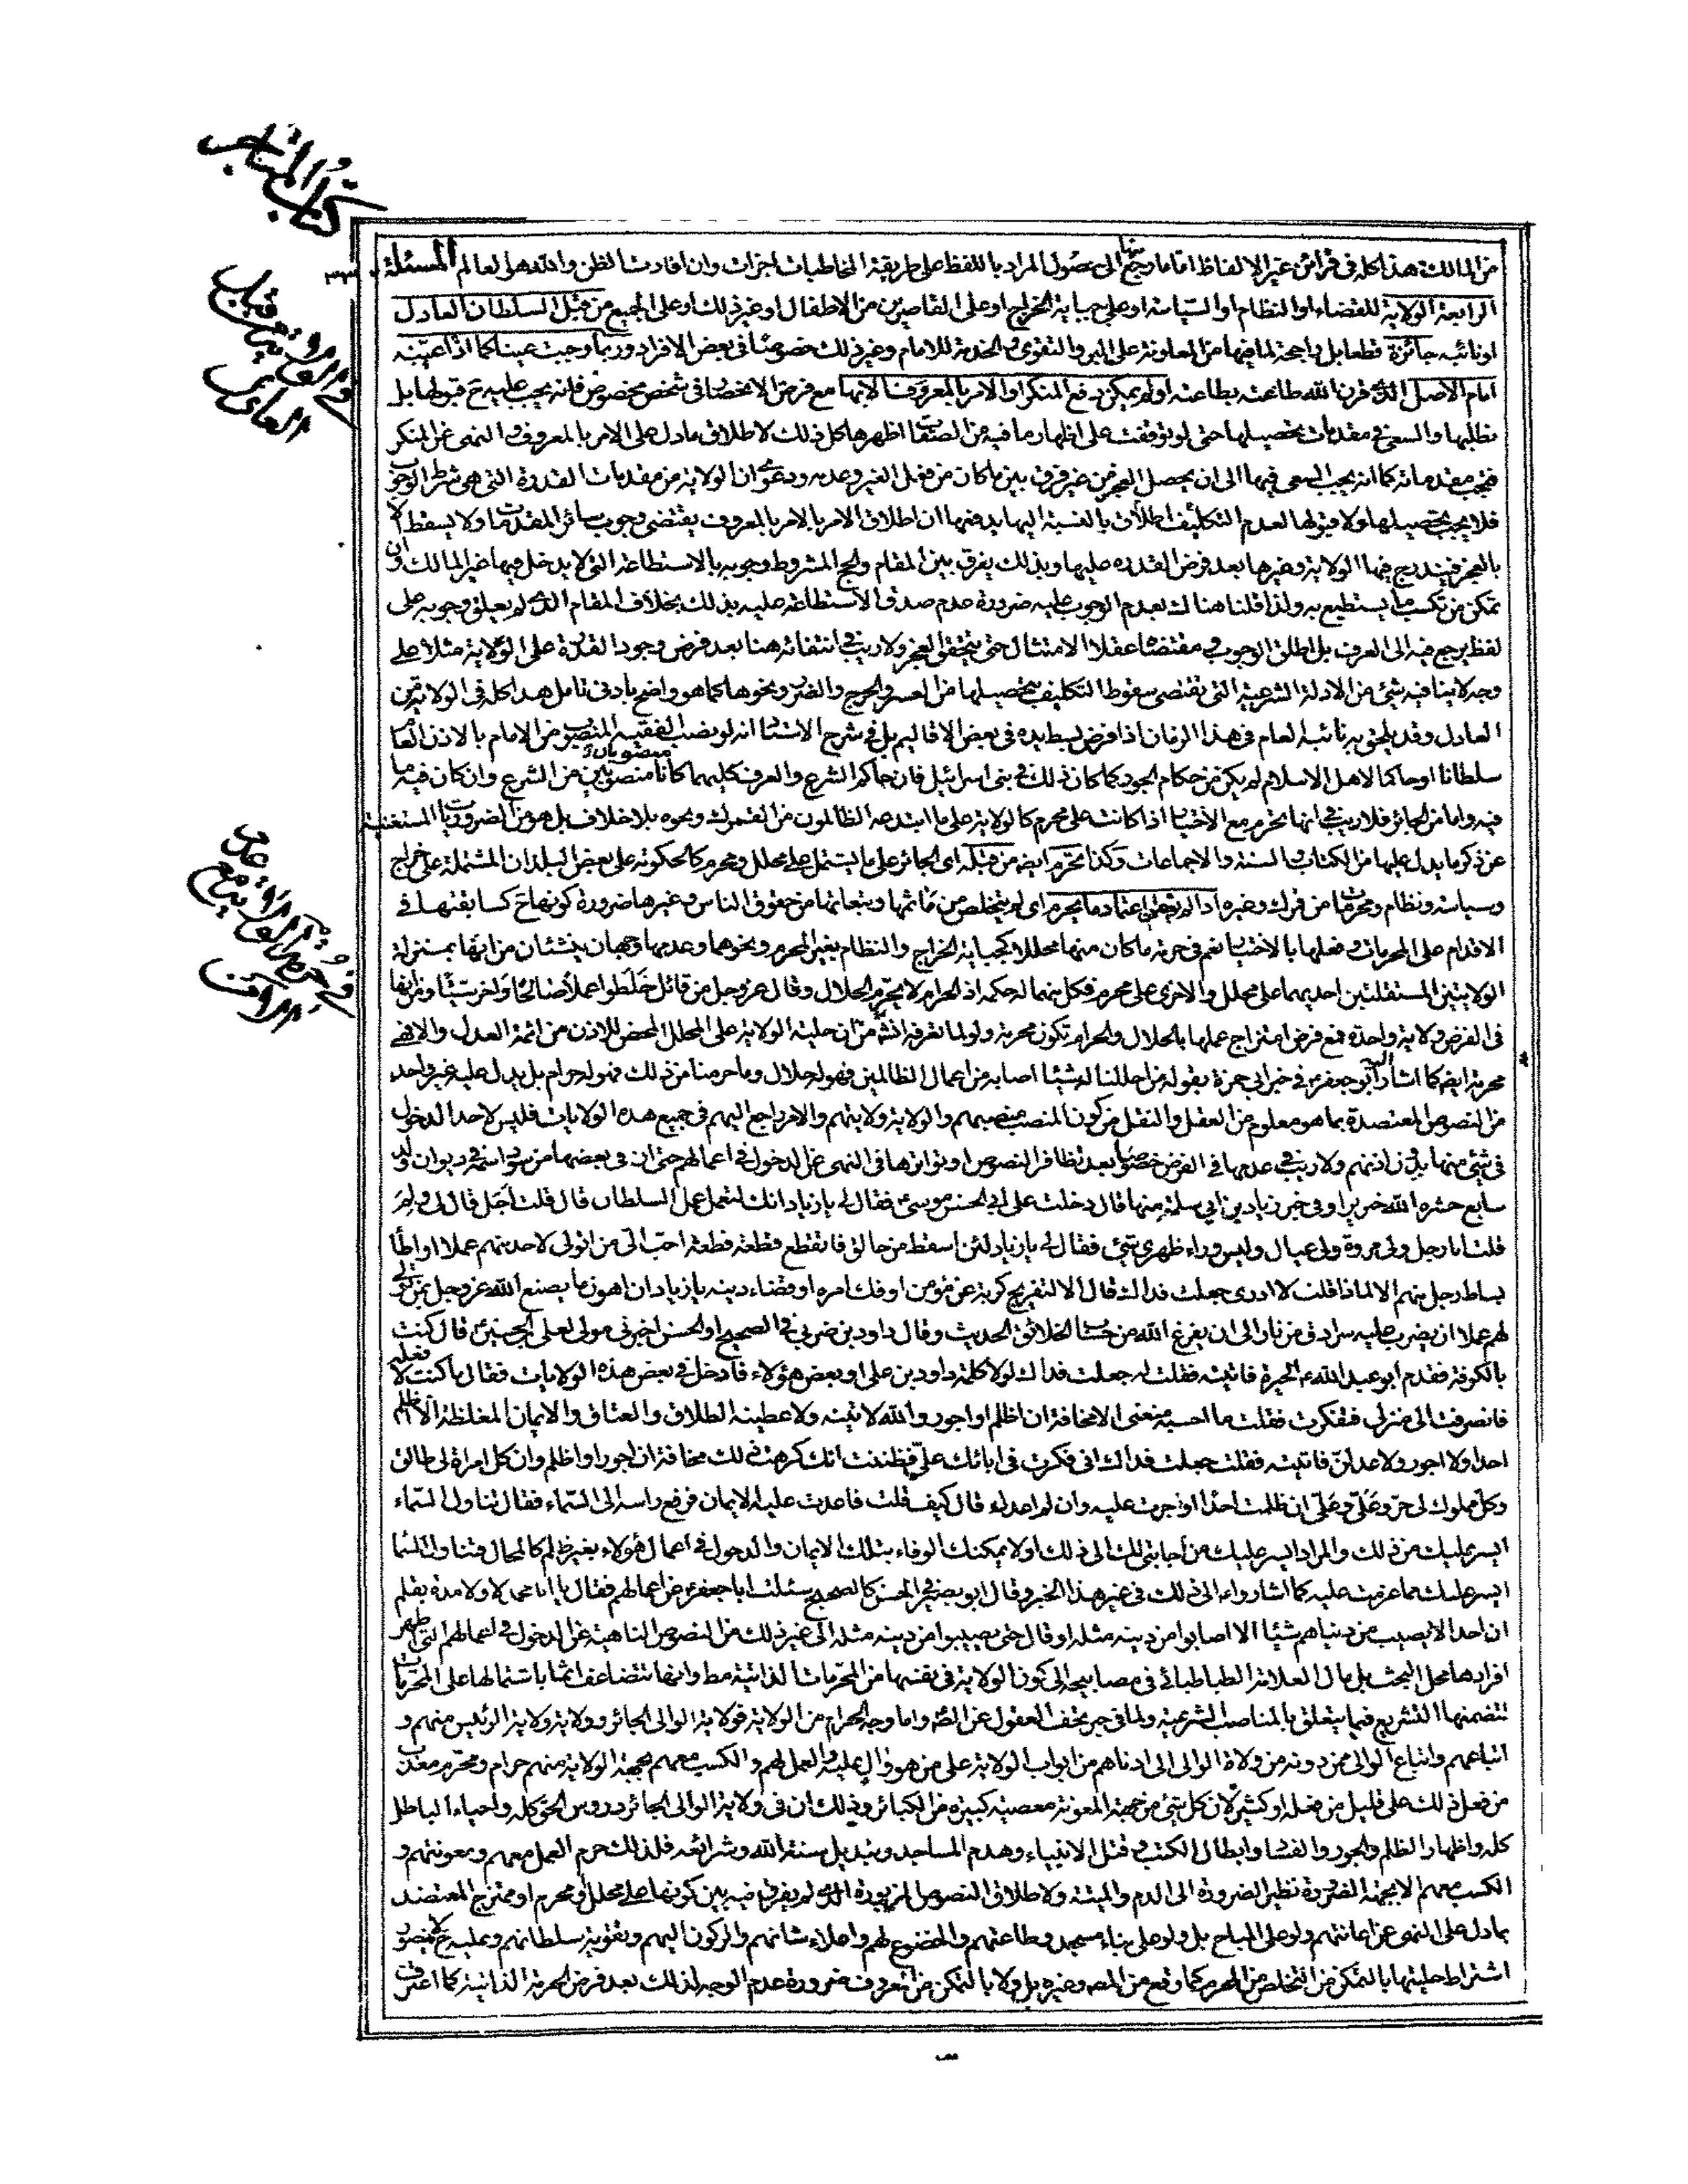 كتاب المتاجر
في الولاية من قبل العادل
من المالك هذا كله في قرائن غير الالفاظ اما ما رجع منها الى حصول المراد باللفظ على طريقة المخاطبات اجزأت وان افادت الظن والله هو العالم المسئلة
الرابعة الولاية للقضاء او النظام او السياسة او على جباية الخراج او على القاصرين من الاطفال او غير ذلك او على الجميع من قبل السلطان العادل
او نائبه جائزة قطعا بل راجحة لما فيها من المعاونة على البر والتقوى والخدمة للامام وغير ذلك خصوصا في بعض الافراد وربما وجبت عينا كما اذا عينه
امام الاصل الذي قرن الله طاعته بطاعته او لم يمكن دفع المنكر او الامر بالمعروف الا بها مع فرض الانحصار في شخص مخصوص فانه يجب عليه ح قبولها بل
تطلبها والسعي في مقدمات تحصيلها حتى لو توقفت على اظهار ما فيه من الصفات اظهرها كل ذلك لاطلاق ما دل على الامر بالمعروف والنهي عن المنكر
فتجب مقدماته كما انه يجب السعي فيها الى ان يحصل العجز من غير فرق بين ما كان من فعل الغير وعدمه ودعوى ان الولاية من مقدمات القدرة التي هي شرط الوجوب
فلا يجب تحصيلها ولا قبولها لعدم التكليف اطلاق بالنسبة اليها يدفعها ان اطلاق الامر بالامر بالمعروف يقتضي وجوب سائر المقدمات ولا يسقط الا
بالعجز فيندرج فيها الولاية وغيرها بعد فرض القدرة عليها وبذلك يفرق بين المقام والحج المشروط وجوبه بالاستطاعة التي لا يدخل فيها غير المالك وان
تمكن من تكسب ما يستطيع به ولذا قلنا هناك بعدم الوجوب عليه ضرورة عدم صدق الاستطاعة عليه بذلك بخلاف المقام الذي لم يعلق وجوبه على
لفظ يرجع فيه الى العرف بل اطلق الوجوب ومقتضاه عقلا الامتثال حتى يتحقق العجز ولا ريب في انتفائه هنا بعد فرض وجود القدرة على الولاية مثلا على
وجه لا ينافيه شيء من الادلة الشرعية التي تقتضي سقوط التكليف بتحصيلها من العسر والحرج والضرر ونحوها كما هو واضح بادنى تامل هذا كله في الولاية من
العادل وقد يلحق به نائبه العام في هذا الزمان اذا فرض بسط يده في بعض الاقاليم بل في شرح الاستاد انه لو نصب الفقيه المنصوب من الامام بالاذن العام
سلطانا او حاكما لاهل الاسلام لم يكن من حكام الجور كما كان ذلك في بني اسرائيل فان حاكم الشرع والعرف كليهما كانا منصوبين من الشرع وان كان فيه ما
في حرمة الولاية على المحرمات
فيه واما من الجائر فلا ريب في انها تحرم مع الاختيار اذا كانت على محرم كالولاية على ما ابتدعه الظالمون من القمرك ونحوه بلا خلاف بل هو من الضروريات المستغنية
عن ذكر ما يدل عليها من الكتاب والسنة والاجماعات وكذا تحرم ايضا من قبله اي الجائر على ما يشتمل على محلل ومحرم كالحكومة على بعض البلدان المشتملة على خراج
وسياسة ونظام ومحرمات من قمرك وغيره اذا لم يامن اعتماد ما يحرم اي لم يتخلص من مآثمها وتبعاتها من حقوق الناس وغيرها ضرورة كونها ح كسابقتها في
الاقدام على المحرمات وفعلها بالاختيار نعم في حرمة ما كان منها محللا كجباية الخراج والنظام بغير المحرم ونحوها وعدمها وجهان ينشئان من انها بمنزلة
الولايتين المستقلتين احديهما على محلل والاخرى على محرم فكل منهما له حكمه اذ الحرام لا يحرم الحلال وقال عز وجل من قائل خلطوا عملا صالحا وآخر سيئا ومن انها
في الفرض ولاية واحدة فمع فرض امتزاج عملها بالحلال والحرام تكون محرمة ولو لما تعرفه انش من ان حلية الولاية على المحلل المحض للاذن من ائمة العدل والا فهي
محرمة ايضا كما اشار اليه ابو جعفر ع في خبر ابي حمزة بقوله من احللنا له شيئا اصابه من اعمال الظالمين فهو له حلال وما حرمنا من ذلك فهو له حرام بل يدل عليه غير واحد
من النصوص المعتضدة بما هو معلوم من العقل والنقل من كون المنصب منصبهم والولاية ولايتهم والامر راجع اليهم في جميع هذه الولايات فليس لاحد الدخول
في شيء منها بدون اذنهم ولا ريب في عدمها في الفرض خصوصا بعد تظافر النصوص او تواترها في النهي عن الدخول في اعمالهم حتى ان في بعضها من سود اسمه في ديوان ولد
سابع حشره الله خنزيرا وفي خبر زياد بن ابي سلمة منها قال دخلت على ابي الحسن موسى ع فقال لي يا زياد انك لتعمل عمل السلطان قال قلت اجل قال لي ولم
قلت انا رجل ولي مروة ولي عيال وليس وراء ظهري شيء فقال لي يا زياد لئن اسقط من حالق فاتقطع قطعة قطعة احب الى من ان اتولى لاحد منهم عملا او اطأ
بساط رجل منهم الا لماذا قلت لا ادري جعلت فداك قال الا لتفريج كربة عن مؤمن او فك اسره او قضاء دينه يا زياد ان اهون ما يصنع الله عز وجل بمن تولى
لهم عملا ان يضرب عليه سرادق من نار الى ان يفرغ الله من حساب الخلائق الحديث وقال داود بن زربي في الصحيح او الحسن اخبرني مولى لعلي بن الحسين ع قال كنت
بالكوفة فقدم ابو عبد الله ع الحيرة فاتيته فقلت له جعلت فداك لو كلمت داود بن علي او بعض هؤلاء فادخل في بعض هذه الولايات فقال ما كنت لافعل
فانصرفت الى منزلي فتفكرت فقلت ما احسبه منعني الا مخافة ان اظلم او اجور والله لاتينه ولاعطينه الطلاق والعتاق والايمان المغلظة الا اظلم
احدا ولا اجور ولاعدلن فاتيته فقلت جعلت فداك اني فكرت في ابائك علي فظننت انك كرهت ذلك مخافة ان اجور او اظلم وان كل امراة لي طالق
وكل مملوك لي حر وعلي وعلي ان ظلمت احدا او جرت عليه وان لم اعدل قال كيف قلت فاعدت عليه الايمان فرفع راسه الى السماء فقال تناول السماء
ايسر عليك من ذلك والمراد ايسر عليك من اجابتي لك الى ذلك او لا يمكنك الوفاء بتلك الايمان والدخول في اعمال هؤلاء بغير ظلم كالمحال فتناولك السماء
ايسر عليك مما عزمت عليه كما اشاروا ع الى ذلك في غير هذا الخبر وقال ابو بصير في الحسن كالصحيح سئلت ابا جعفر ع عن اعمالهم فقال يا ابا محمد لا ولا مدة بقلم
ان احدا لا يصيب من دنياهم شيئا الا اصابوا من دينه مثله او قال حتى يصيبوا من دينه مثله الى غير ذلك من النصوص الناهية عن الدخول في اعمالهم التي اظهر
افرادها محل البحث بل مال العلامة الطباطبائي في مصابيحه الى كون الولاية في نفسها من المحرمات الذاتية مط وانها تتضاعف اثما باشتمالها على المحرمات
لتضمنها التشريع فيما يتعلق بالمناصب الشرعية ولما في خبر تحف العقول عن الص واما وجه الحرام من الولاية فولاية الوالي الجائر وولاية ولاته الرئيس منهم و
اتباعهم واتباع الوالي فمن دونه من ولاة الوالي الى ادناهم من ابواب الولاية على من هو وال عليه والعمل لهم والكسب معهم بجهة الولاية منهم حرام ومحرم معذب
من فعل ذلك على قليل من فعله او كثير لان كل شيء من جهة المعونة معصية كبيرة من الكبائر وذلك ان في ولاية الوالي الجائر دروس الحق كله واحياء الباطل
كله واظهار الظلم والجور والفساد وابطال الكتب وقتل الانبياء وهدم المساجد وتبديل سنة الله وشرائعه فلذلك حرم العمل معهم ومعونتهم و
الكسب معهم الا بجهة الضرورة نظير الضرورة الى الدم والميتة ولاطلاق النصوص المزبورة الذي لم يفرق فيه بين كونها على محلل او محرم او ممتزج المعتضد
بما دل على النهي عن اعانتهم ولو على المباح بل ولو على بناء مسجد وطاعتهم والخضوع لهم واعلاء شانهم والركون اليهم وتقوية سلطانهم وعليه ح لا يتصور
اشتراط حليتها بالتمكن من التخلص من المحرم كما وقع من المص وغيره بل ولا بالتمكن من المعروف ضرورة عدم الوجه لذلك بعد فرض الحرمة الذاتية كما اعترف